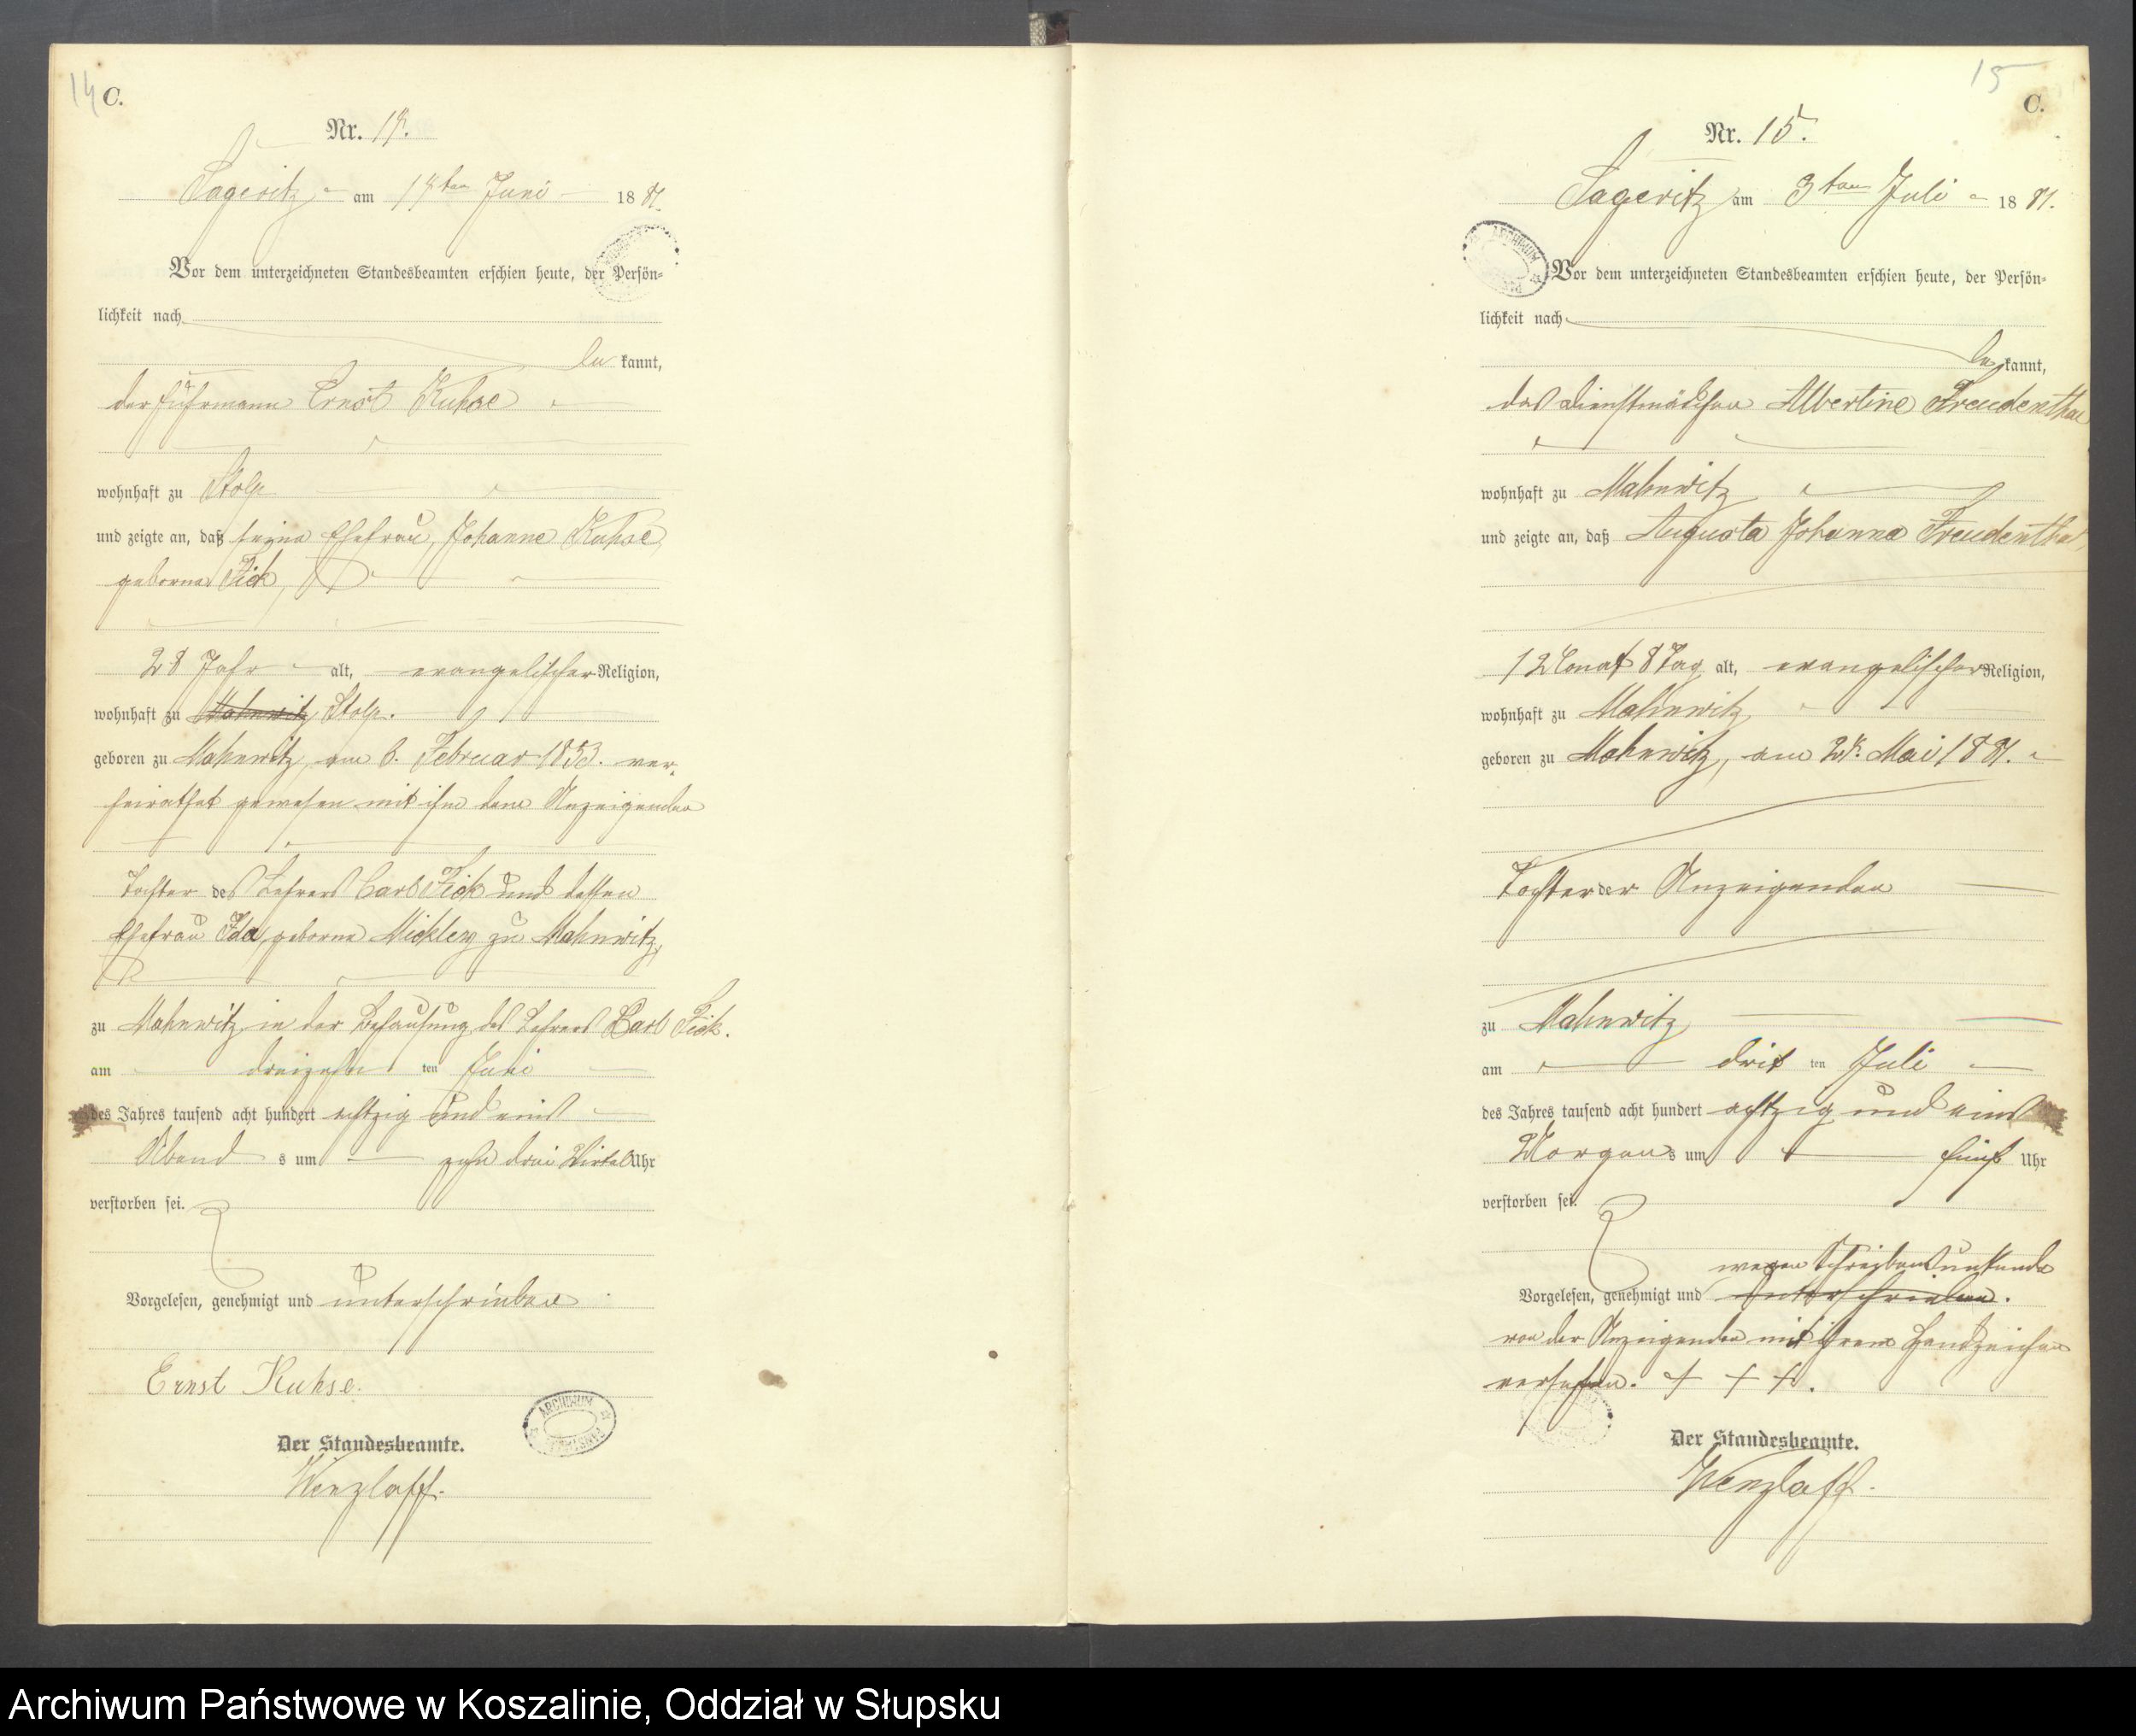 14 C.
Nr. 14.
Sageritz am 14ten Juni 1881.
Vor dem unterzeichneten Standesbeamten erschien heute, der Persön-
lichkeit nach
be kannt,
der Fuhrmann Ernst Kuhse
wohnhaft zu Stolp
und zeigte an, daß seine Ehefrau, Johanne Kuhse
geborne Fick,
28 Jahr alt, evangelischer Religion,
wohnhaft zu Mahnwitz Stolp.
geboren zu Mahnwitz, am 6. Februar 1853. ver-
heirathet gewesen mit ihm dem Anzeigenden
Tochter des Lehrers Carl Fick und dessen
Ehefrau Ida, geborne zu Mahnwitz,
zu Mahnwitz in der Behausung des Lehrers Carl Fick.
am dreizehn ten Juni
des Jahres tausend acht hundert achtzig und eins
Abend s um zehn drei Viertel Uhr
verstorben sei.
Vorgelesen, genehmigt und unterschrieben
Ernst Kuhse.
ARCHIWUM
Der Standesbeamte.
Wenzlaff.
15
C.
Nr. 15.
Sageritz am 3ten Juli 1881.
ARCHIWUM
Vor dem unterzeichneten Standesbeamten erschien heute, der Persön-
lichkeit nach
be kannt,
das Dienstmädchen Albertine Freudenthal
wohnhaft zu Mahnwitz
und zeigte an, daß Augusta Johanna Freudenthal,
1 Monat 8 Tag alt, evangelischer Religion,
wohnhaft zu Mahnwitz
geboren zu Mahnwitz, am 24. Mai 1881.
Tochter der Anzeigenden
zu Mahnwitz
am drit ten Juli
des Jahres tausend acht hundert achtzig und eins
Morgen s um fünf Uhr
verstorben sei.
wegen Schreibensunkunde
Vorgelesen, genehmigt und unterschrieben.
von der Anzeigenden mit ihrem Handzeichen
versehen. + + +.
Der Standesbeamte.
Wenzlaff.
Archiwum Państwowe w Koszalinie, Oddział w Słupsku